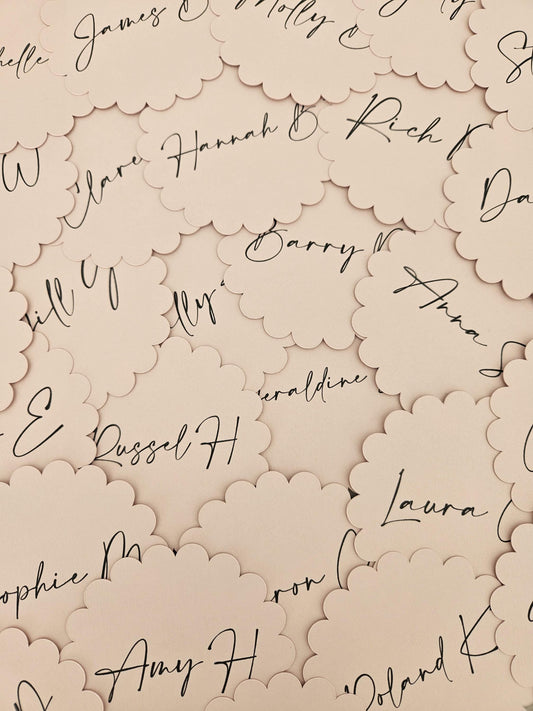 James
Molly
helle
W
Clare
Hannah B
Rich
Da
Barry
ill
lly
Anna
eraldine
E
Russel H
Laura
ophie M
ron
Amy H
Roland K